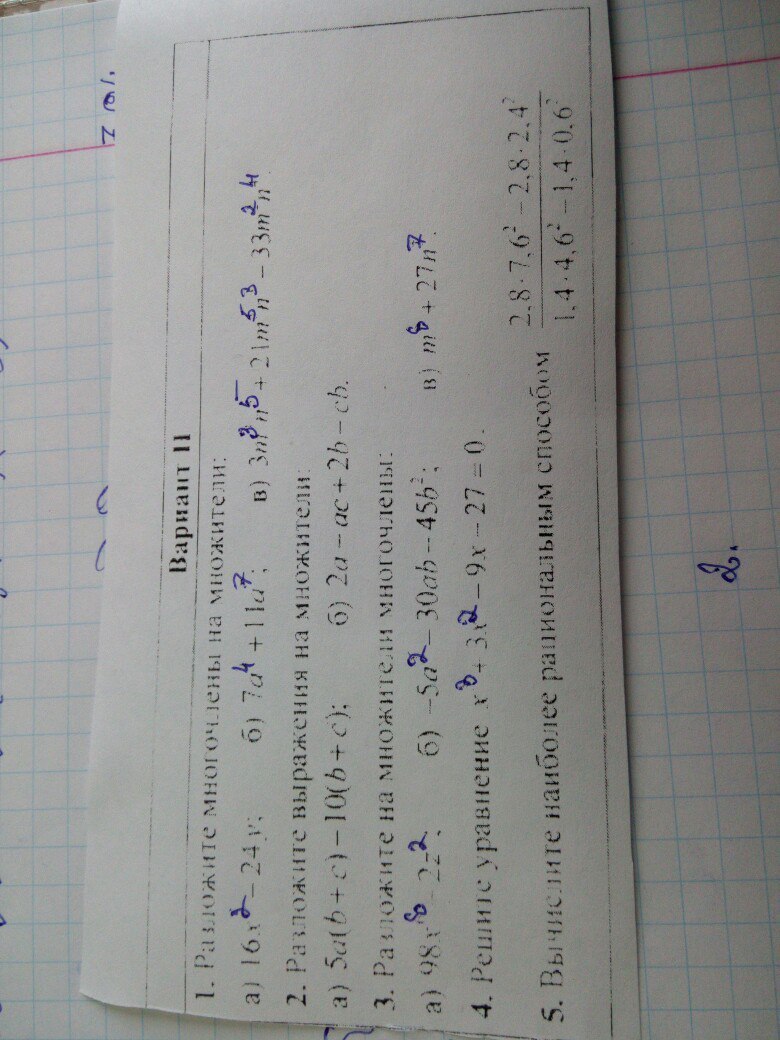 Вариант II
1. Разложите многочлены на множители:
а) 16x² − 24y; б) 7a⁴ + 11a⁷; в) 3m³n⁵ + 21m⁵n³ − 33m²n⁴.
2. Разложите выражения на множители:
а) 5a(b + c) − 10(b + c); б) 2a − ac + 2b − cb.
3. Разложите на множители многочлены:
а) 98x⁸ − 2z²; б) −5a² − 30ab − 45b²; в) m⁸ + 27n⁷.
4. Решите уравнение x³ + 3x² − 9x − 27 = 0.
5. Вычислите наиболее рациональным способом (2,8 · 7,6² − 2,8 · 2,4²) / (1,4 · 4,6² − 1,4 · 0,6²)
2.